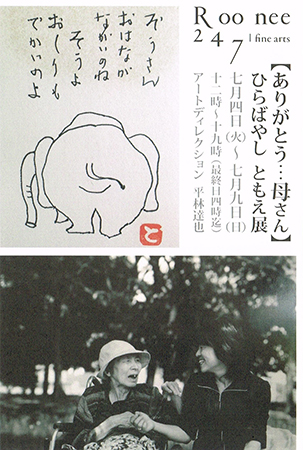 Roonee
247 | fine arts
【ありがとう…母さん】
ひらばやし ともえ展
七月四日(火)〜七月九日(日)
十二時〜十九時(最終日四時迄)
アートディレクション 平林達也
ぞうさん
おはなが
ながいのね
そうよ
おしりも
でかいのよ
と